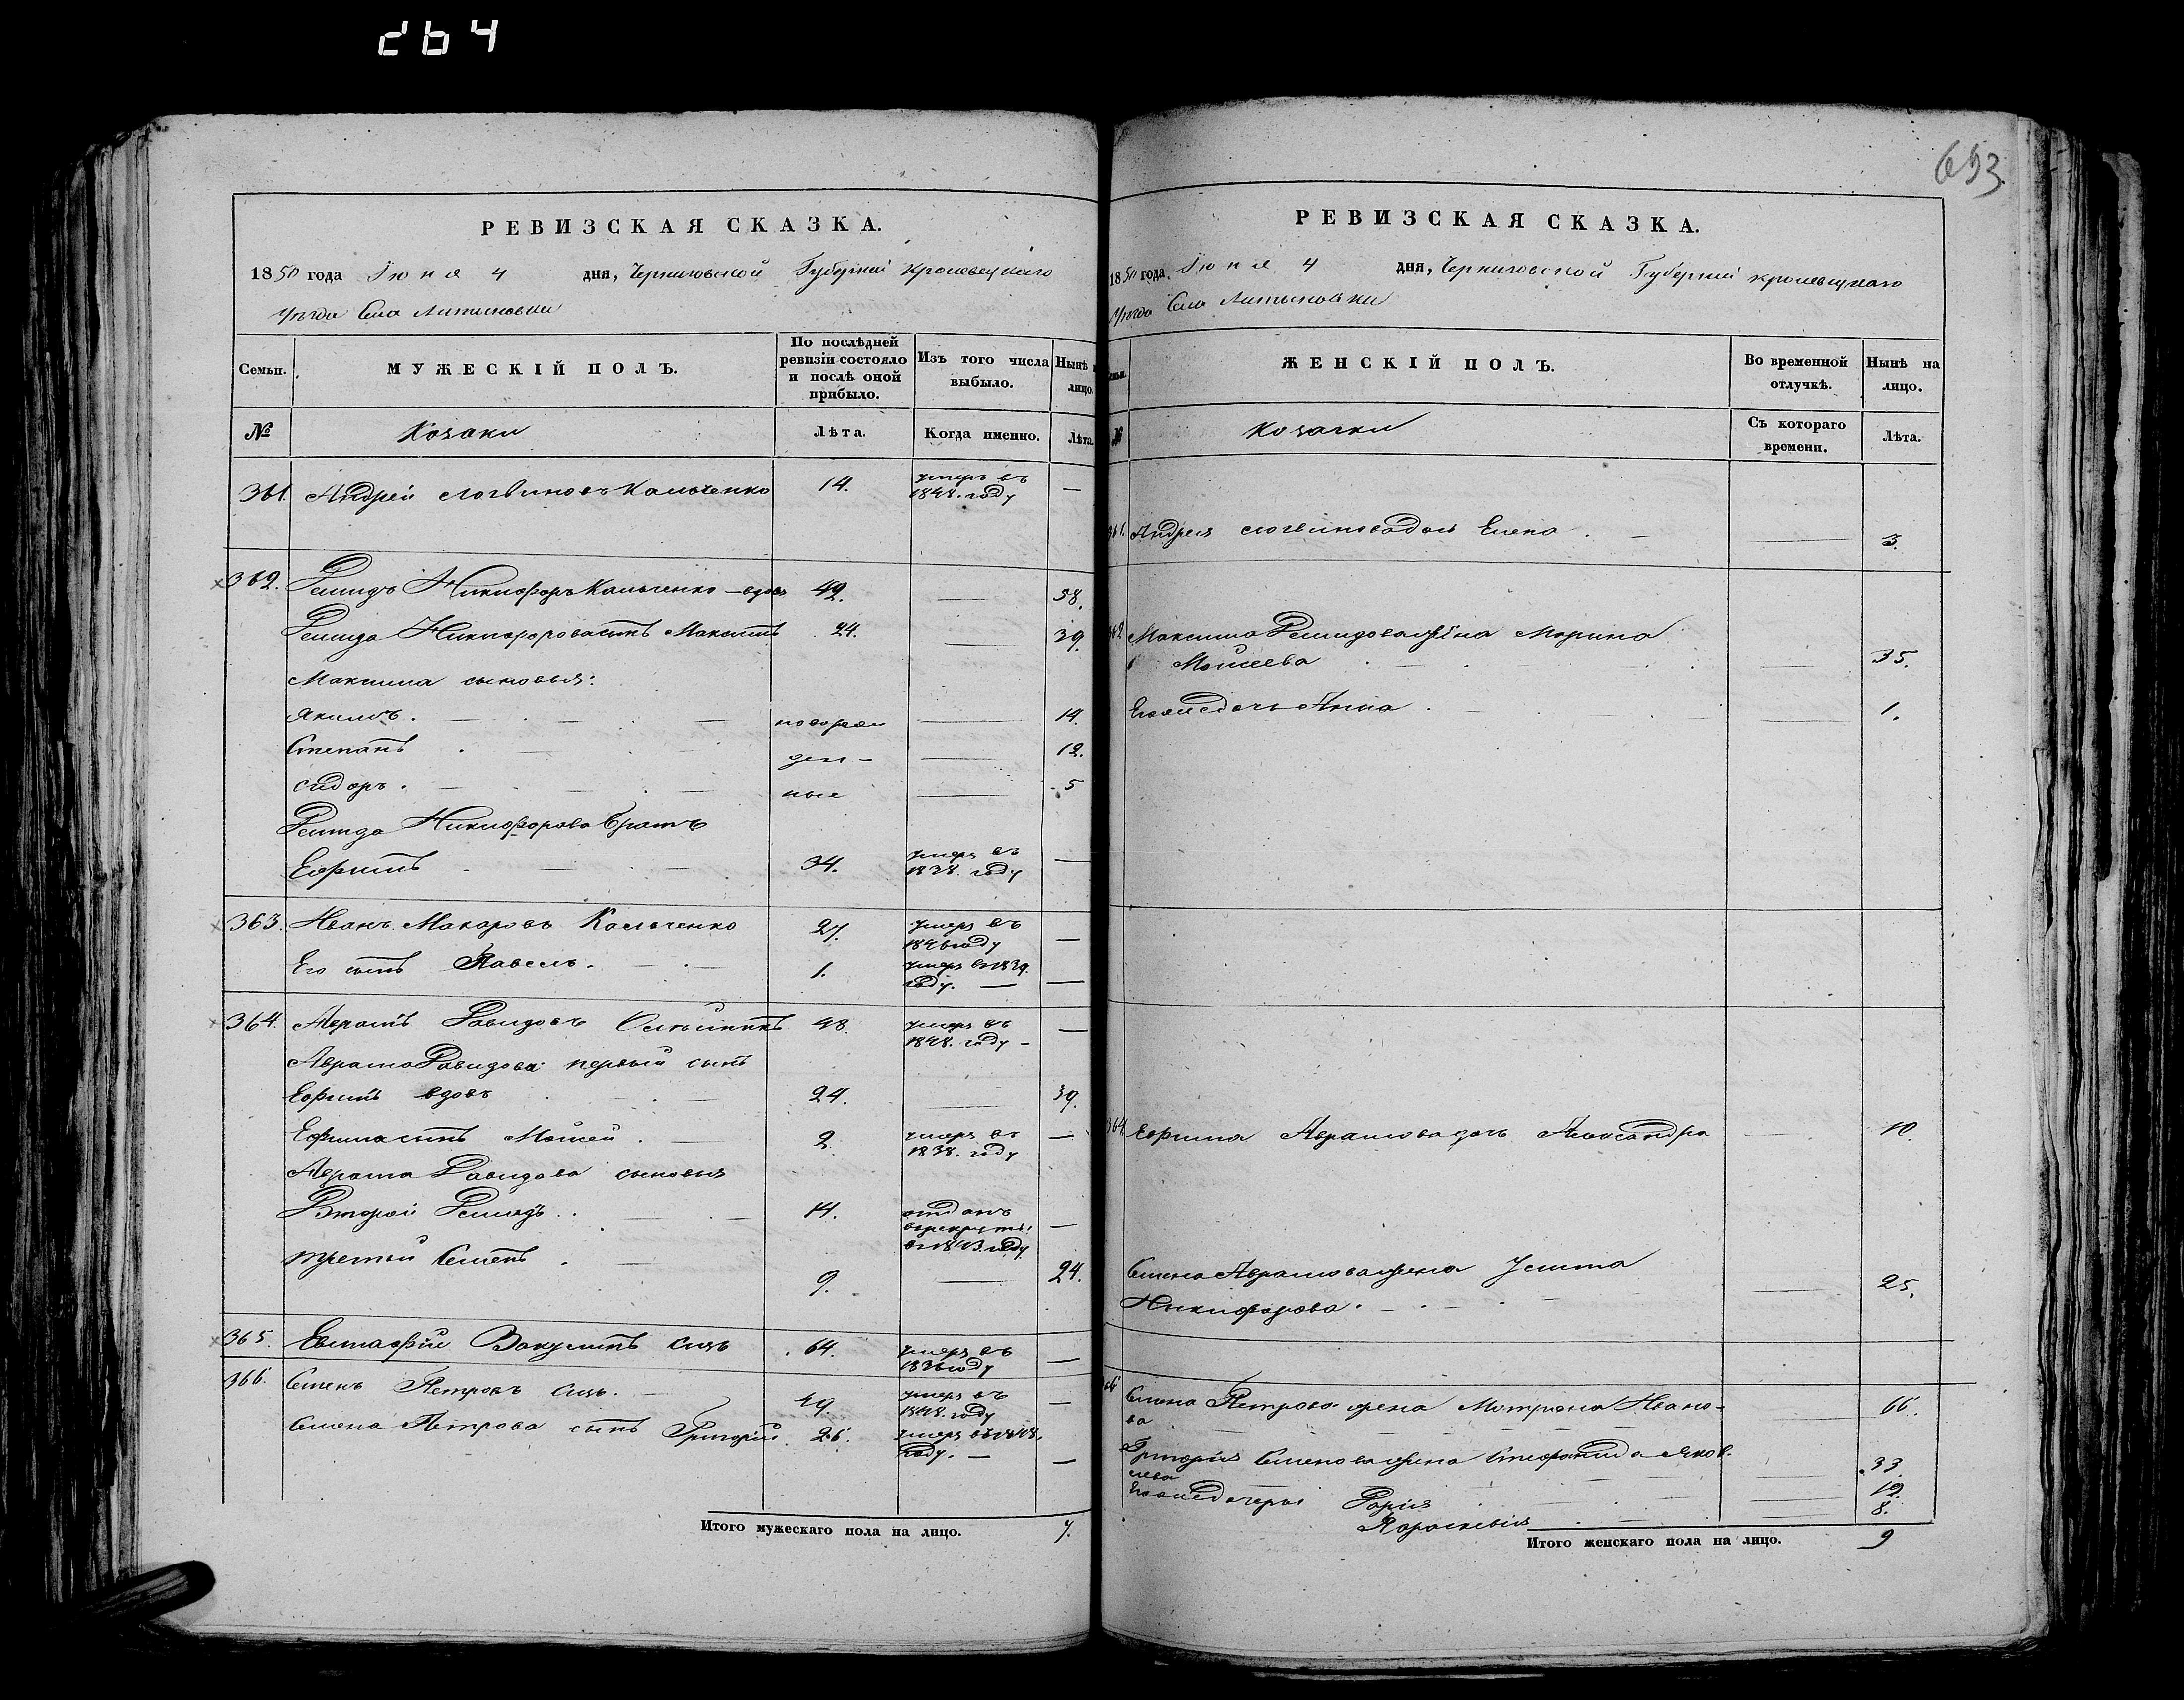 264
653
РЕВИЗСКАЯ СКАЗКА.
1850 года Іюня 4 дня, Черниговской Губерніи Кролевецкаго
уѣзда Села Литвиновки
Семьи. МУЖЕСКІЙ ПОЛЪ. По послѣдней ревизіи состояло и послѣ оной прибыло. Изъ того числа выбыло. Нынѣ на лицо.
№ Козаки Лѣта. Когда именно. Лѣта.
361. Андрей Логвиновъ Кальченко 14. умеръ въ 1848. году —
х 362. Демидъ Никифоръ Кальченко — вдовъ 42. — 58.
Демида Никифорова сынъ Максимъ 24. — 39.
Максима сыновья:
Якимъ. новорож — 14.
Степанъ ден — 12.
Сидоръ. ные — 5
Демида Никифорова братъ
Ефимъ 34. умеръ въ 1838. году —
х 363. Иванъ Макаровъ Кальченко 27. умеръ въ 1846 году —
Его сынъ Павелъ. 1. умеръ въ 1839. году. —
х 364. Аврамъ Давидовъ Олѣйникъ 48. умеръ въ 1848. году —
Аврама Давидова первый сынъ
Ефимъ вдовъ 24. — 39.
Ефима сынъ Мойсей. 2. умеръ въ 1838. году —
Аврама Давидова сыновья
Второй Демидъ. 14. отданъ въ рекруты въ 1843. году —
третій Семенъ. 9. — 24.
х 365. Евстафій Вакулинъ 64. умеръ въ 1836 году —
366. Семенъ Петровъ 49. умеръ въ 1848. году —
Семена Петрова сынъ Григорій. 26. умеръ въ 1848. году. —
Итого мужескаго пола на лицо. 7.
РЕВИЗСКАЯ СКАЗКА.
1850 года Іюня 4 дня, Черниговской Губерніи Кролевецкаго
уѣзда Села Литвиновки
Семьи. ЖЕНСКІЙ ПОЛЪ. Во временной отлучкѣ. Нынѣ на лицо.
№ Козачки Съ котораго времени. Лѣта.
361. Андрея Логвинова дочь Елена. — 3.
362 Максима Демидова жена Марина
Мойсеева — 35.
Его же дочь Анна. 1.
364. Ефима Аврамова дочь Александра — 10.
Семена Аврамова жена Улита
Никифорова. — 25.
366 Семена Петрова жена Матрона Ивано-
ва — 66.
Григорія Семенова жена Стефанида Яков-
лева — 33.
Его же дочери Дарія — 12.
Параскевія — 8.
Итого женскаго пола на лицо. 9